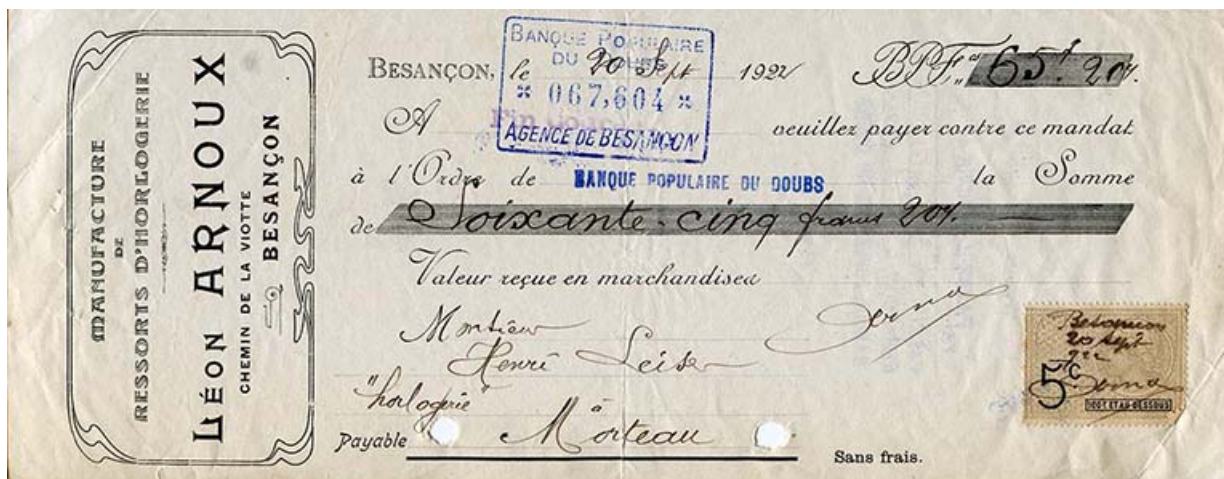 MANUFACTURE
DE
RESSORTS D'HORLOGERIE
LÉON ARNOUX
CHEMIN DE LA VIOTTE
BESANÇON
BANQUE POPULAIRE
DU DOUBS
* 067,604 *
AGENCE DE BESANÇON
BESANÇON, le 20 Sept 1922
BPF 65f 20c.
A veuillez payer contre ce mandat
à l'Ordre de BANQUE POPULAIRE DU DOUBS la Somme
de Soixante-cinq francs 20c.
Valeur reçue en marchandises
Monsieur
Henri
"horlogerie"
à
Payable Morteau
Sans frais.
Besançon
20 Sept
922
5c
100F ET AU-DESSOUS